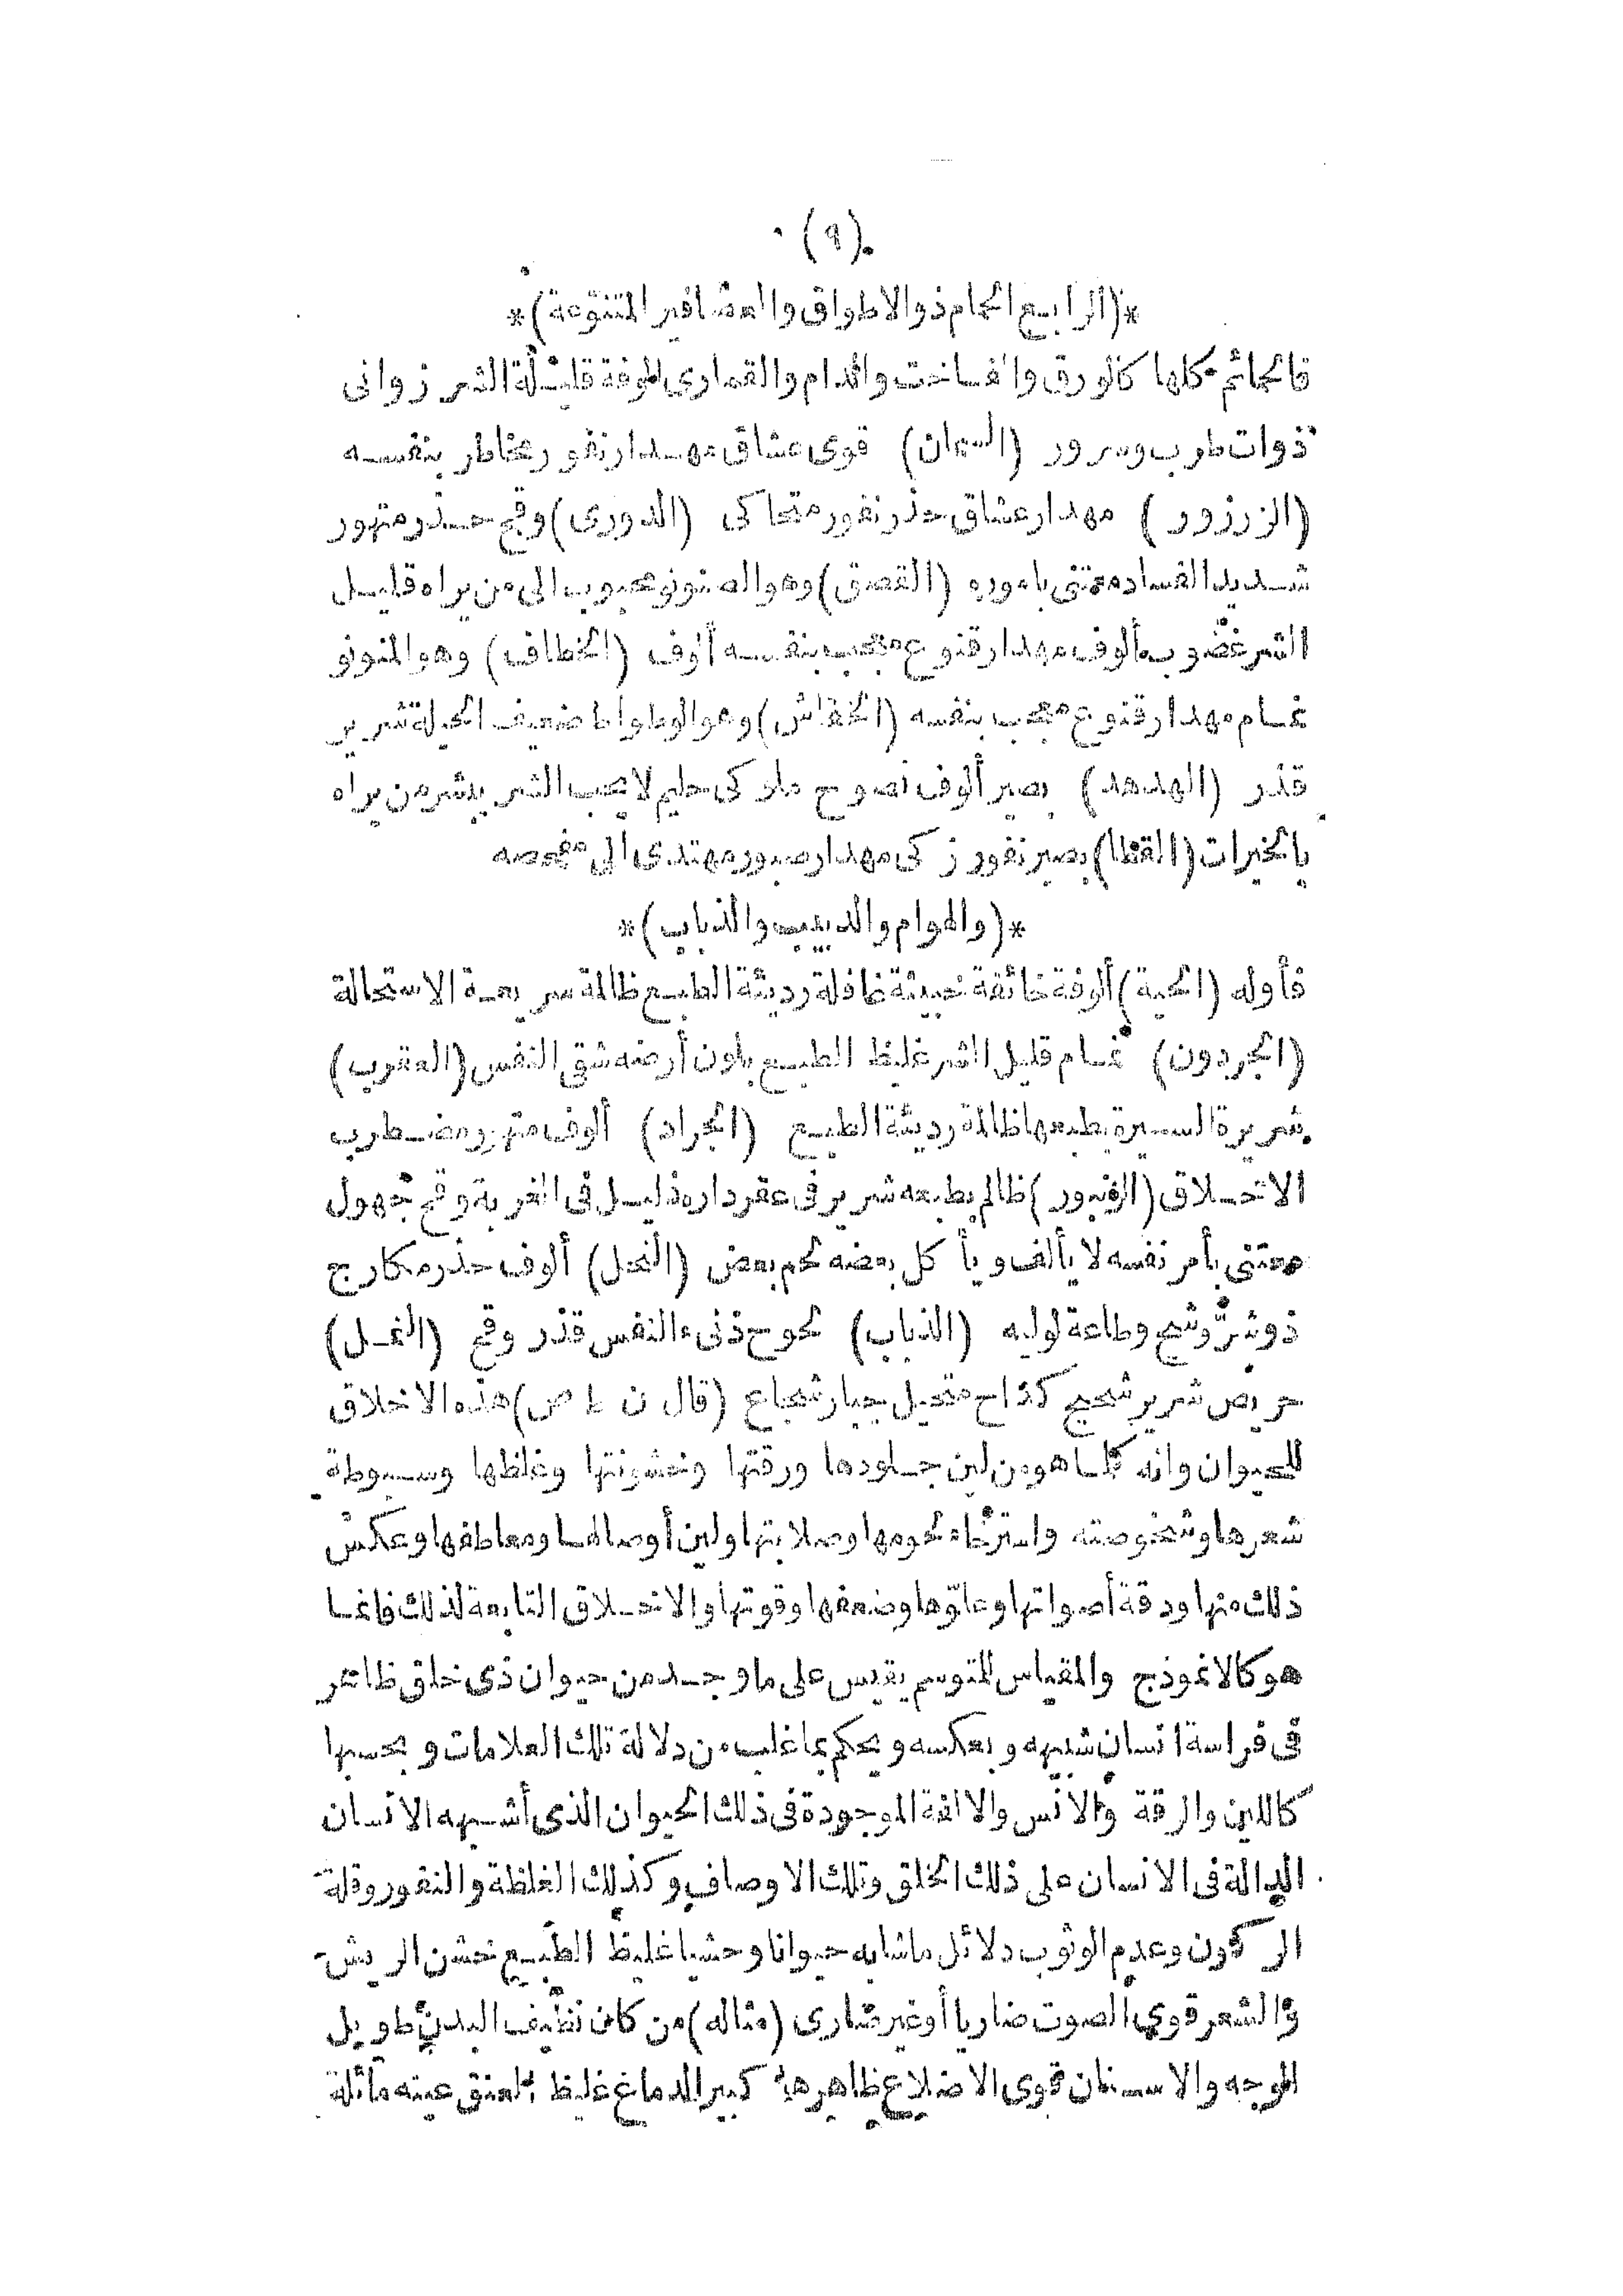 (٩)
*(الرابع الحمام ذو الاطواق والعصافير المتنوّعة)*
فالحمائم كلها كالورق والفاخت واليمام والقمارى ألوفة قليلة الشر زوانى
ذوات طرب وسرور (السمان) قوى عشاق مهدار نفور مخاطر بنفسه
(الزرزور) مهدار عشاق حذر نفور متحاكى (الدورى) وقح حذر متهور
شديد الفساد معتنى باموره (القصق) وهو الصنونو محبوب الى من يراه قليل
الشر غضوب مألوف مهدار قنوع معجب بنفسه ألوف (الخطاف) وهو المنونو
غام مهدار قنوع معجب بنفسه (الخفاش) وهو الوطواط ضعيف الحيلة شرير
قذر (الهدهد) بصير ألوف نصوح ملوكى حليم لا يحب الشر يبشر من يراه
بالخيرات (القطا) بصير نفور زكى مهدار صبور مهتدى الى مفحصه
*(والهوام والدبيب والذباب)*
فأوله (الحية) ألوفة خائفة خبيثة غافلة رديئة الطبع ظالمة سريعة الاستحالة
(الجردون) غام قليل الشر غليظ الطبع بلون أرضه شقى النفس (العقرب)
شريرة السيرة بطبعها ظالمة رديئة الطبع (الجراد) ألوف متهور مضطرب
الاخلاق (الزنبور) ظالم بطبعه شرير فى عقر داره ذليل فى الغربة وقح جهول
معتنى بأمر نفسه لا يألف ويأكل بعضه لحم بعض (النحل) ألوف حذر مكارج
ذو شرّ وشح وطاعة لوليه (الذباب) لحوح دنىء النفس قذر وقح (النمل)
حريص شرير شحيح كداح متحيل جبار شجاع (قال ن ط ص) هذه الاخلاق
للحيوان وانه كلما هو من لين جلودها ورقتها وخشونتها وغلظها وسبوطة
شعرها وشخوصته واسترخاء لحومها وصلابتها ولين أوصالها ومعاطفها وعكس
ذلك منها ودقة أصواتها وعلوّها وضعفها وقوتها والاخلاق التابعة لذلك فانما
هو كالانموذج والمقياس للمتوسم يقيس على ما وجد من حيوان ذى خلق ظاهر
فى فراسة انسان شبهه وبعكسه ويحكم بما غلب من دلالة تلك العلامات وبحسبها
كاللين والرقة والانس والالفة الموجودة فى ذلك الحيوان الذى أشبهه الانسان
الدالة فى الانسان على ذلك الخلق وتلك الاوصاف وكذلك الغلظة والنفور وقلة
الركون وعدم الوثوب دلائل ما شابه حيوانا وحشيا غليظ الطبع خشن الريش
والشعر قوى الصوت ضاريا أو غير ضارى (مثاله) من كان نظيف البدن طويل
الوجه والاسنان قوى الاضلاع ظاهرها كبير الدماغ غليظ العنق عينه مائلة